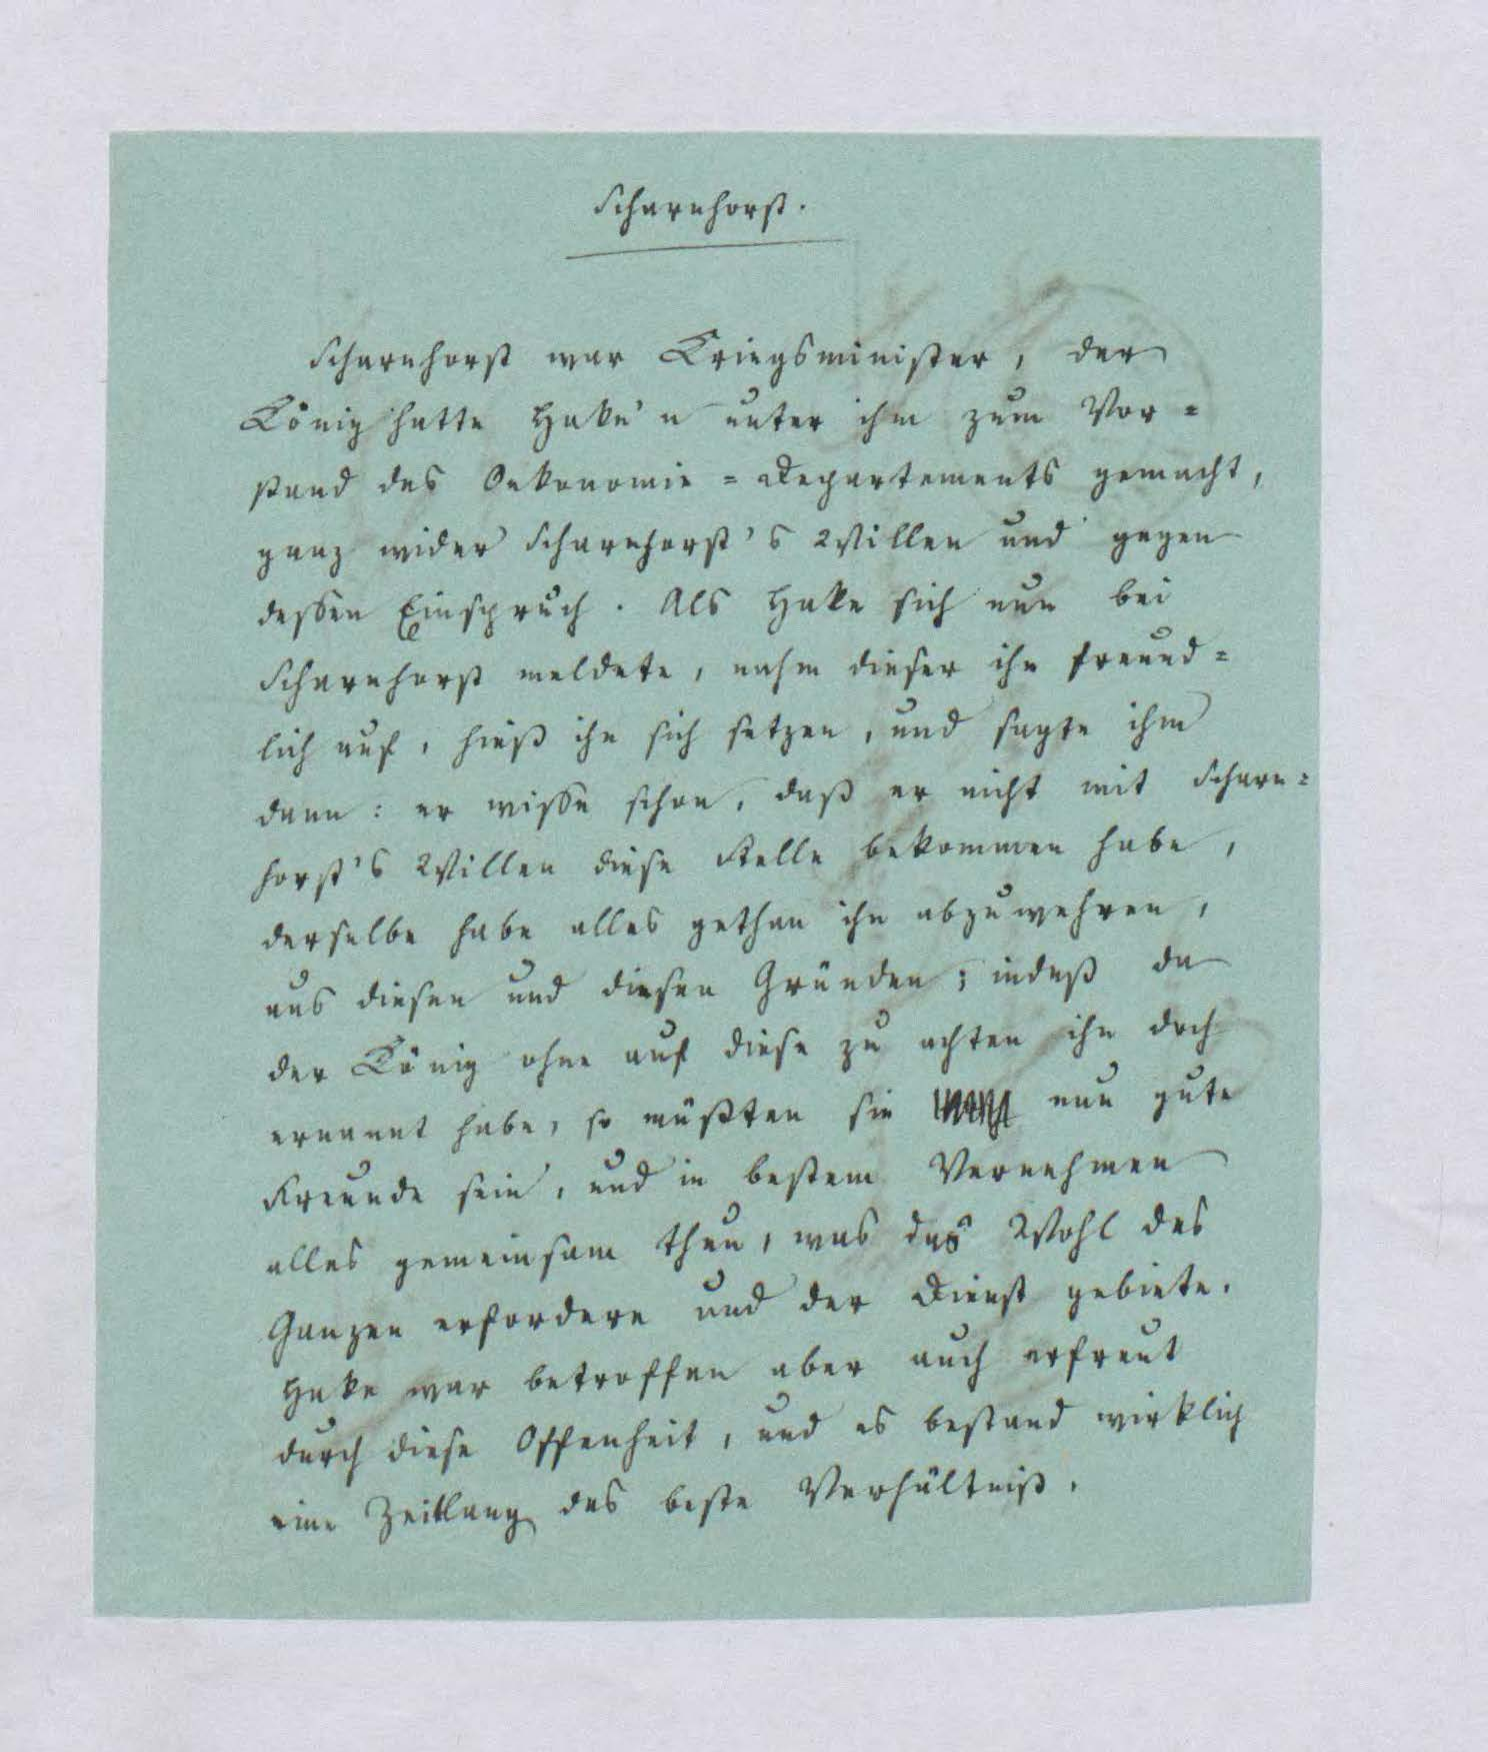 Scharnhorst.
Scharnhorst war Kriegsminister, der
König hatte Hake'n unter ihm zum Vor=
stand des Oekonomie=Departements gemacht,
ganz wider Scharnhorst's Willen und gegen
dessen Einspruch. Als Hake sich nun bei
Scharnhorst meldete, nahm dieser ihn freund=
lich auf, hieß ihn sich setzen, und sagte ihm
dann: er wisse schon, daß er nicht mit Scharn=
horst's Willen diese Stelle bekommen habe,
derselbe habe alles gethan ihn abzuwehren,
aus diesen und diesen Gründen; indeß da
der König ohne auf diese zu achten ihn doch
ernannt habe, so müßten sie nun gute
Freunde sein, und in bestem Vernehmen
alles gemeinsam thun, was das Wohl des
Ganzen erfordere und der Dienst gebiete.
Hake war betroffen aber auch erfreut
durch diese Offenheit, und es bestand wirklich
eine Zeitlang das beste Verhältniß.